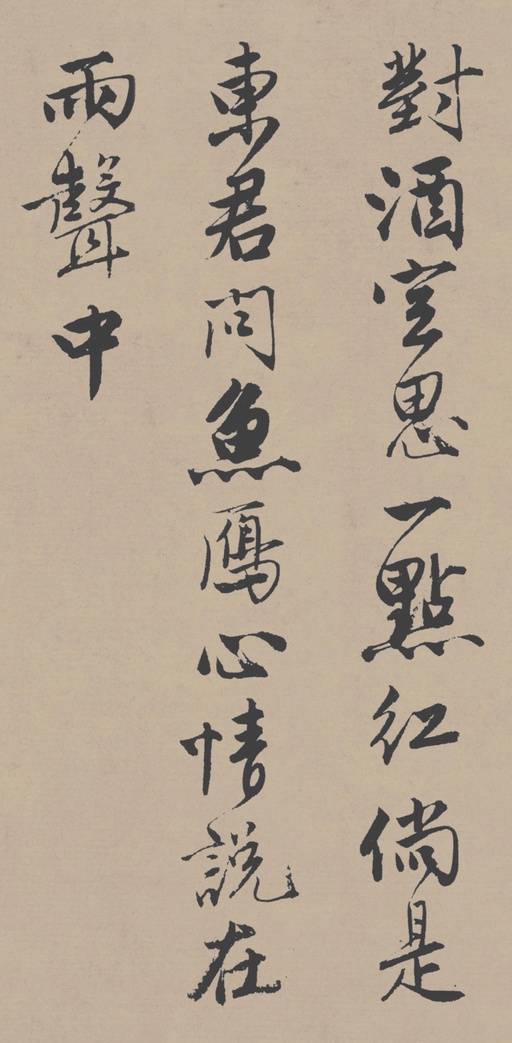 對酒空思一點紅倘是
東君問魚鴈心情說在
雨聲中